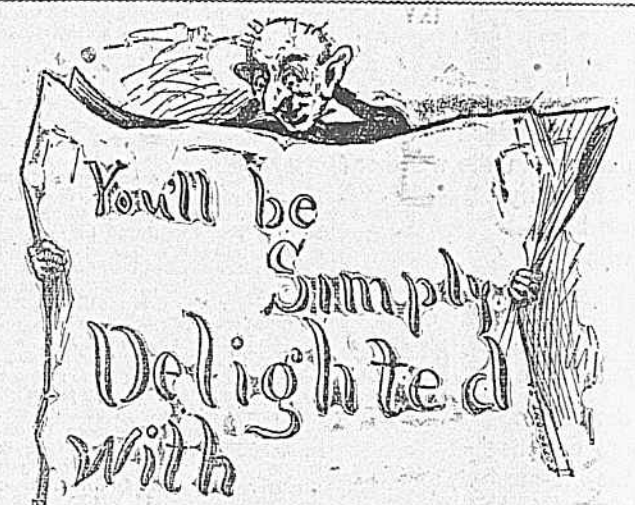 You'll be
Simply
Delighted
with